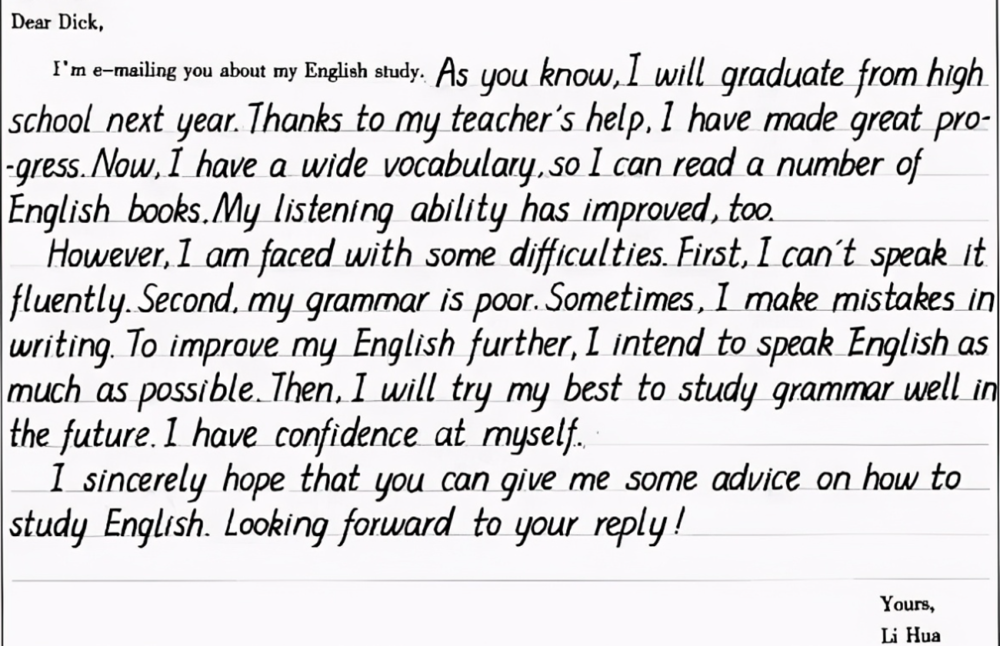 Dear Dick,
I'm e-mailing you about my English study. As you know, I will graduate from high
school next year. Thanks to my teacher's help, I have made great pro-
-gress. Now, I have a wide vocabulary, so I can read a number of
English books. My listening ability has improved, too.
However, I am faced with some difficulties. First, I can't speak it
fluently. Second, my grammar is poor. Sometimes, I make mistakes in
writing. To improve my English further, I intend to speak English as
much as possible. Then, I will try my best to study grammar well in
the future. I have confidence at myself.
I sincerely hope that you can give me some advice on how to
study English. Looking forward to your reply!
Yours,
Li Hua